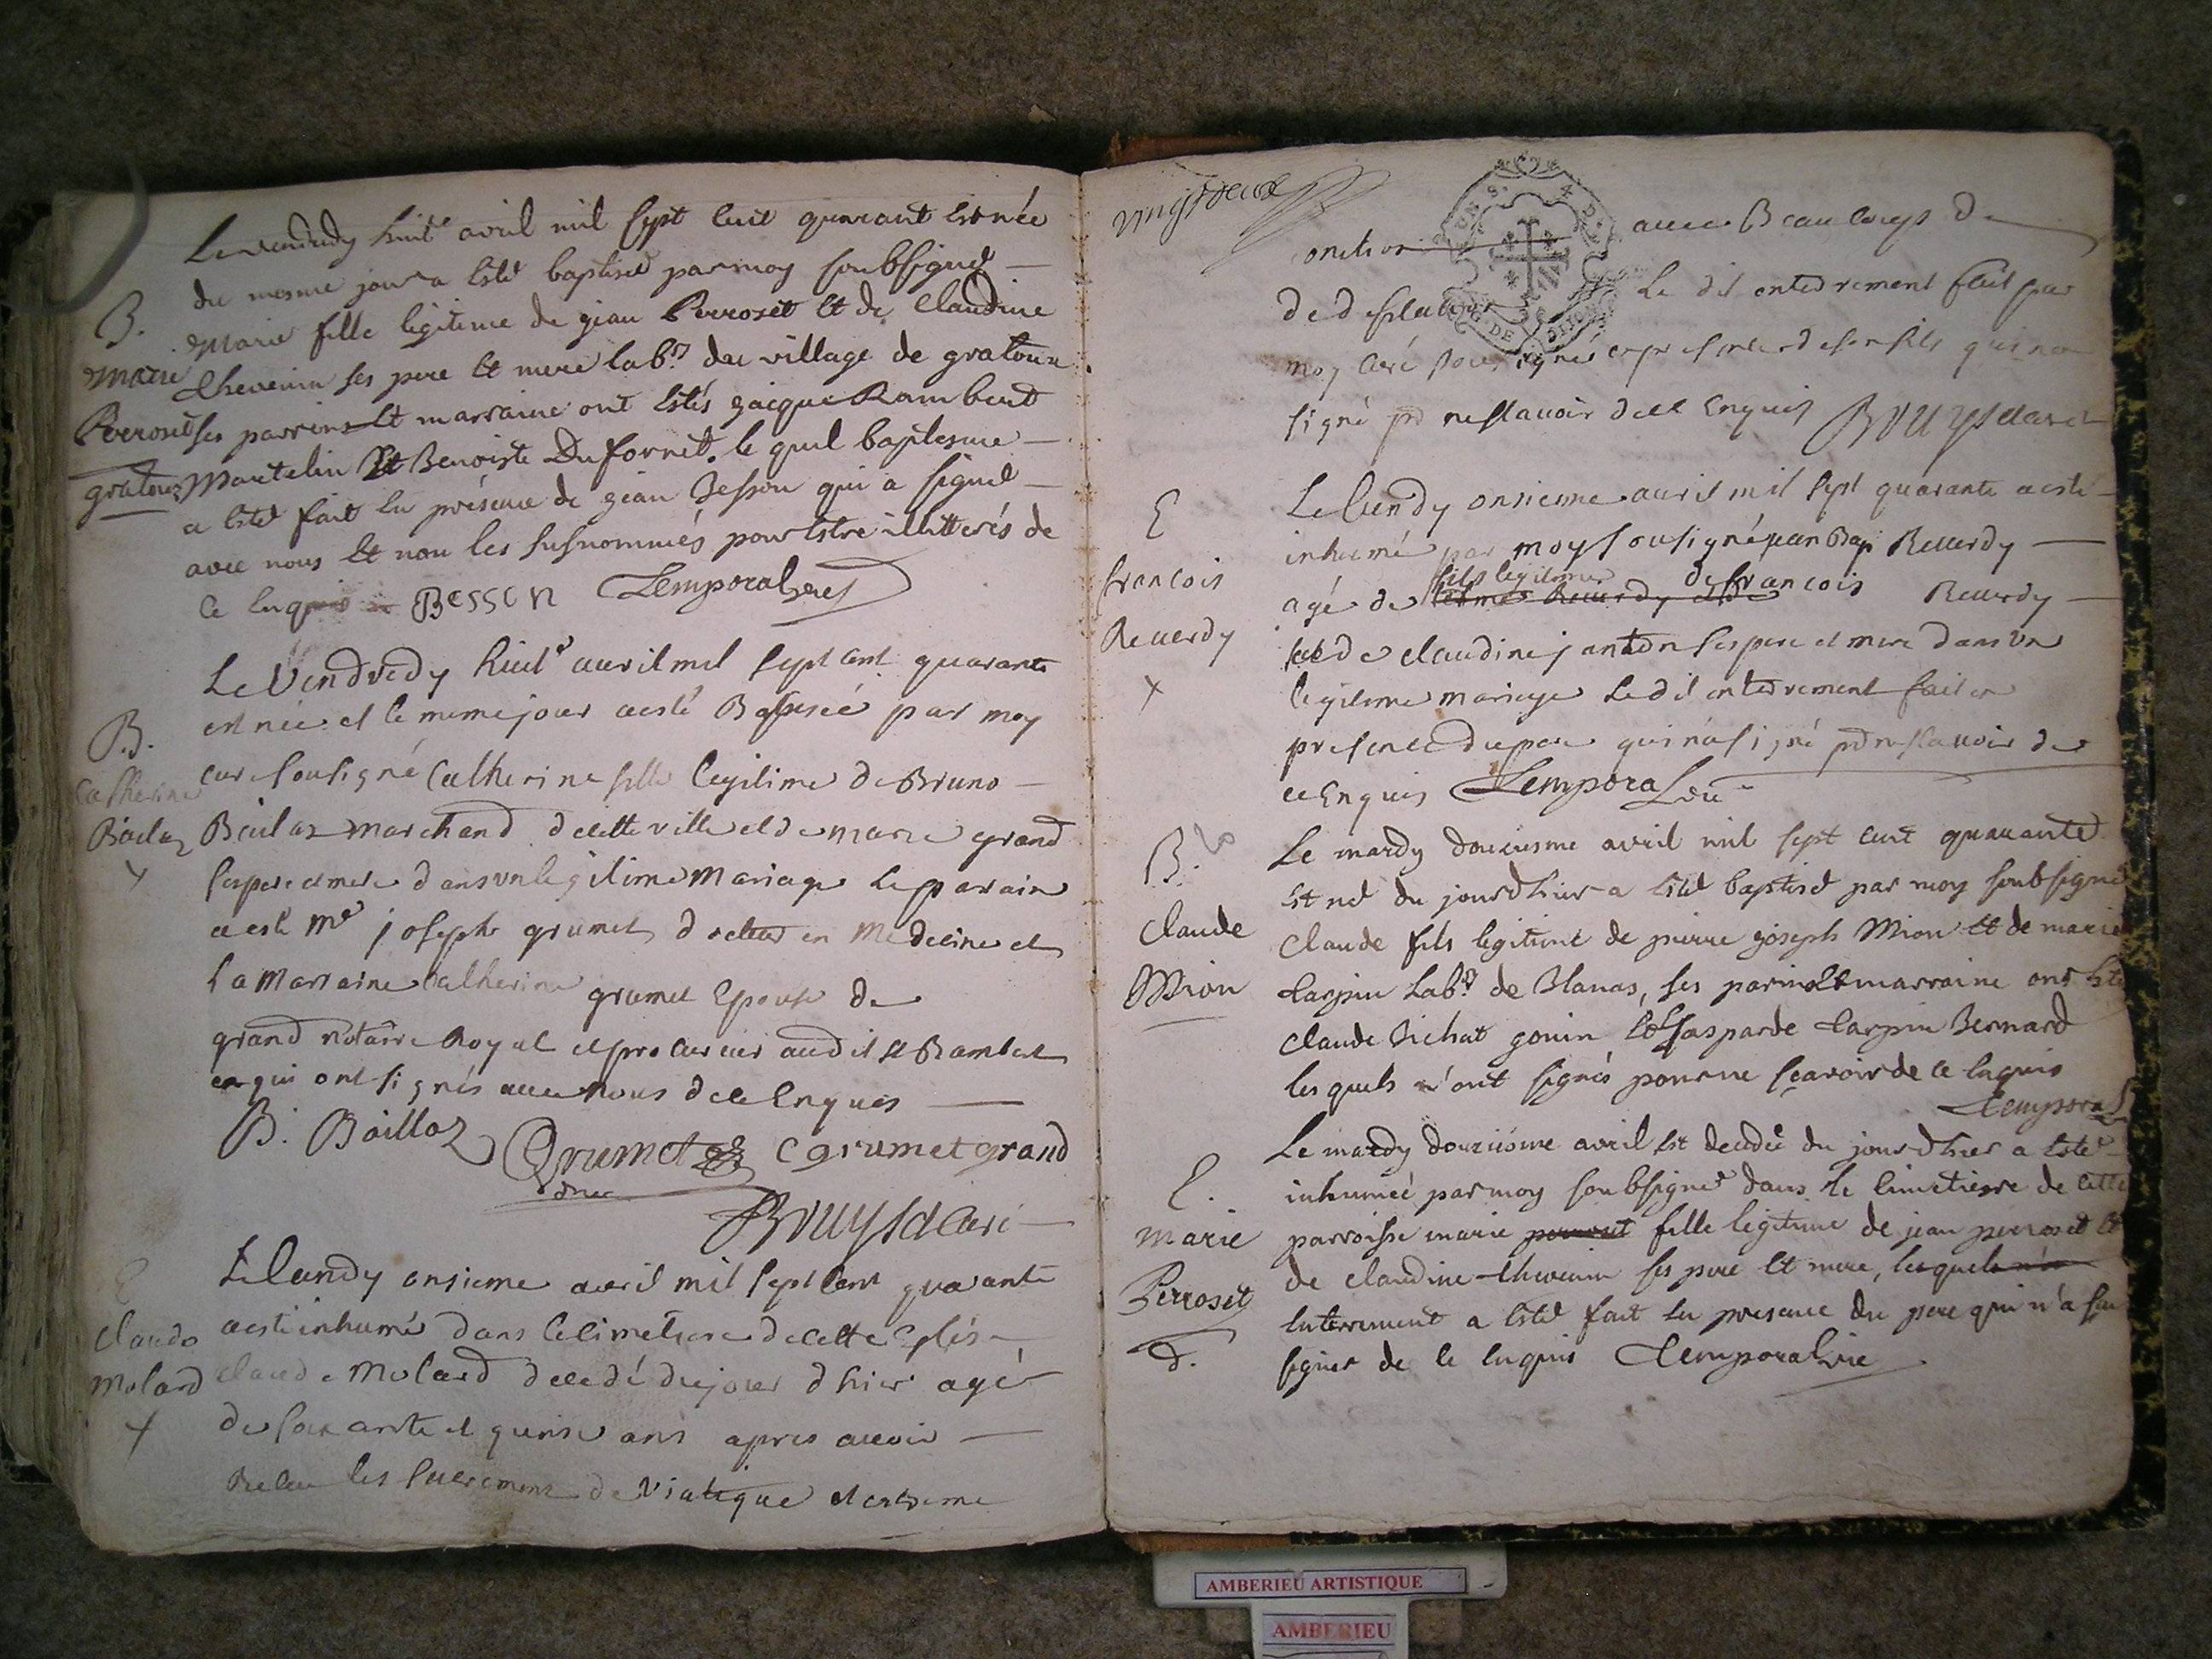 Le vendredy huit avril mil sept cent quarant est née
du mesme jour a esté baptisé par moy soubsigné
B.
Marie fille legitime de gian Perroset et de Claudine
Marie
Thevenin ses pere et mere labr du village de gratoux
Perroset
ses parrins et marraine ont estés jacque Rambeut
gratoux
Mantelin et Benoiste Dufornet. le quel baptesme
a esté fait en présence de gian Besson qui a signé
avec nous et non les susnommés pour estre illitterés de
ce enquis Besson Temporal vic
Le Vendredy huite avril mil sept cent quarante
est née et le meme jour a esté Baptisée par moy
B.
curé sousigné Catherine fille legitime de Bruno
Catherine
Bailaz marchand de cette ville et de marie grand
Bailaz
ses pere et mere dans un legitime Mariage le parain
a esté me joseph grumet docteur en Medecine et
La Marraine Catherine grumet Epouse de
grand notaire Royal et procureur audit st Rambert
qui ont signés avec nous de ce Enquis
B. Baillaz Grumet C grumet grand
Bruyset Curé
E
Le lundy onsieme avril mil sept cent quarante
Claude
a esté inhumé dans le cimetiere de cette Eglise
Molard
claude Molard decedé du jour d'hier agé
de soixante et quinse ans apres avoir
Receu les sacremens de Viatique et extreme
vingt deux
onction avec Beaucoup de
de Le dit enterrement fait par
moy curé soussigné en presence de son fils qui na
signé pr ne scavoir de ce Enquis Bruyset curé
E
Le lundy onsieme avril mil sept quarante a esté
inhumé par moy sousigné jean Bap Reverdy
francois
fils legitime
agé de de francois Reverdy
Reverdy
et de claudine janton ses pere et mere dans un
legitime mariage Le dit enterrement fait en
presence du pere qui n'a signé pr ne scavoir de
ce Enquis Temporal vic
B.
Le mardy douziesme avril mil sept cent quarante
est né du jourdhier a esté baptisé par moy soubsigné
Claude
Claude fils legitime de pierre joseph Mion et de marie
Mion
Carpin Labr de Blanas, ses parin et marraine ont esté
Claude Bichat gonin et gasparde Carpin Bernard
les quels n'ont signés pour ne sçavoir de ce enquis
Temporal
Le mardy douziesme avril est decedée du jourdhier a esté
E.
inhumée par moy soubsigné dans le cimetierre de cette
marie
parroisse marie perroset fille legitime de jean perroset et
Perroset
de claudine thevenin ses pere et mere, les quels n'on
d.
enterrement a esté fait en presence du pere qui n'a sceu
signer de ce enquis Temporal vic
AMBERIEU ARTISTIQUE
AMBERIEU